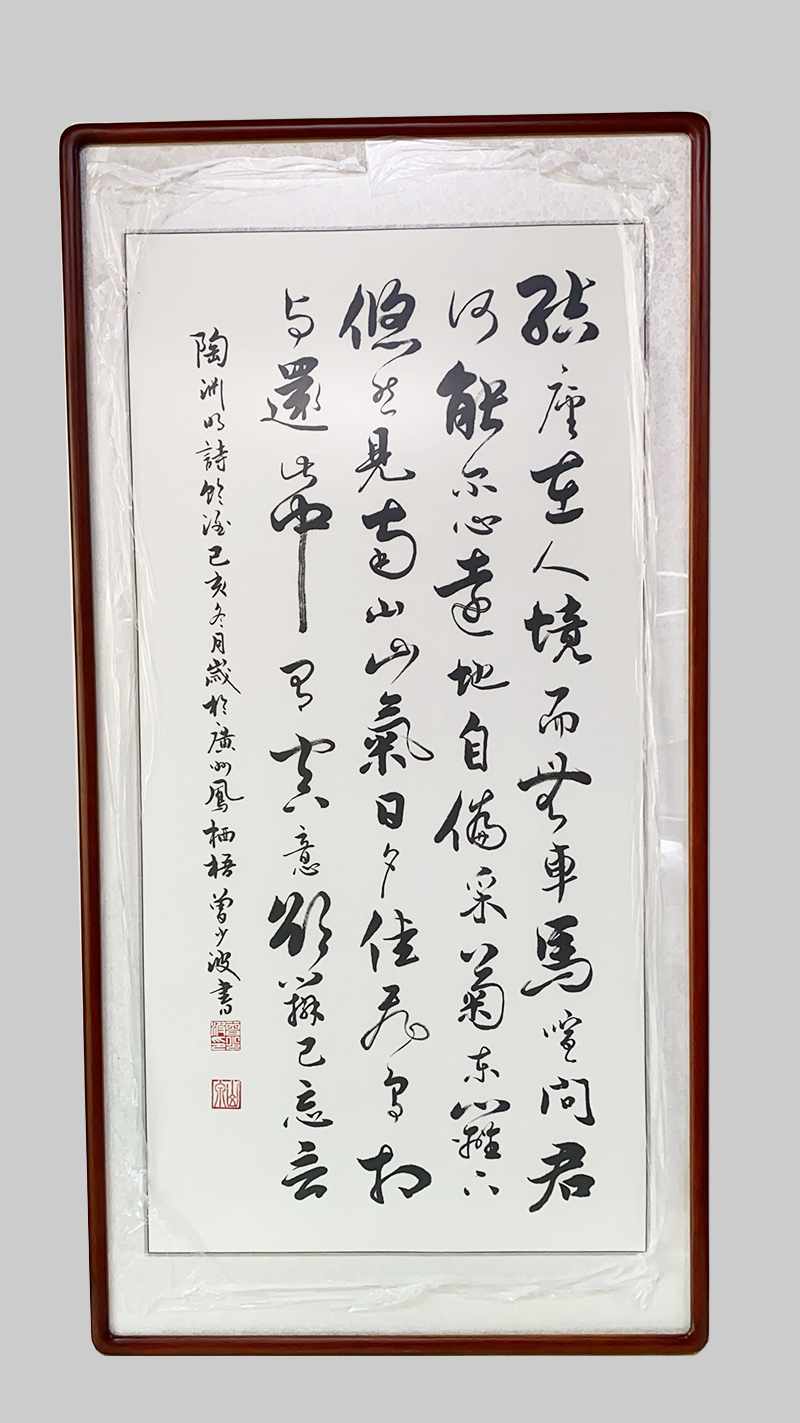 結廬在人境而無車馬喧問君
何能尔心遠地自偏采菊东籬下
悠然見南山山氣日夕佳飛鳥相
与還此中有真意欲辨已忘言
陶渊明詩飲酒己亥冬月歲於廣州鳳栖梧曾少波書